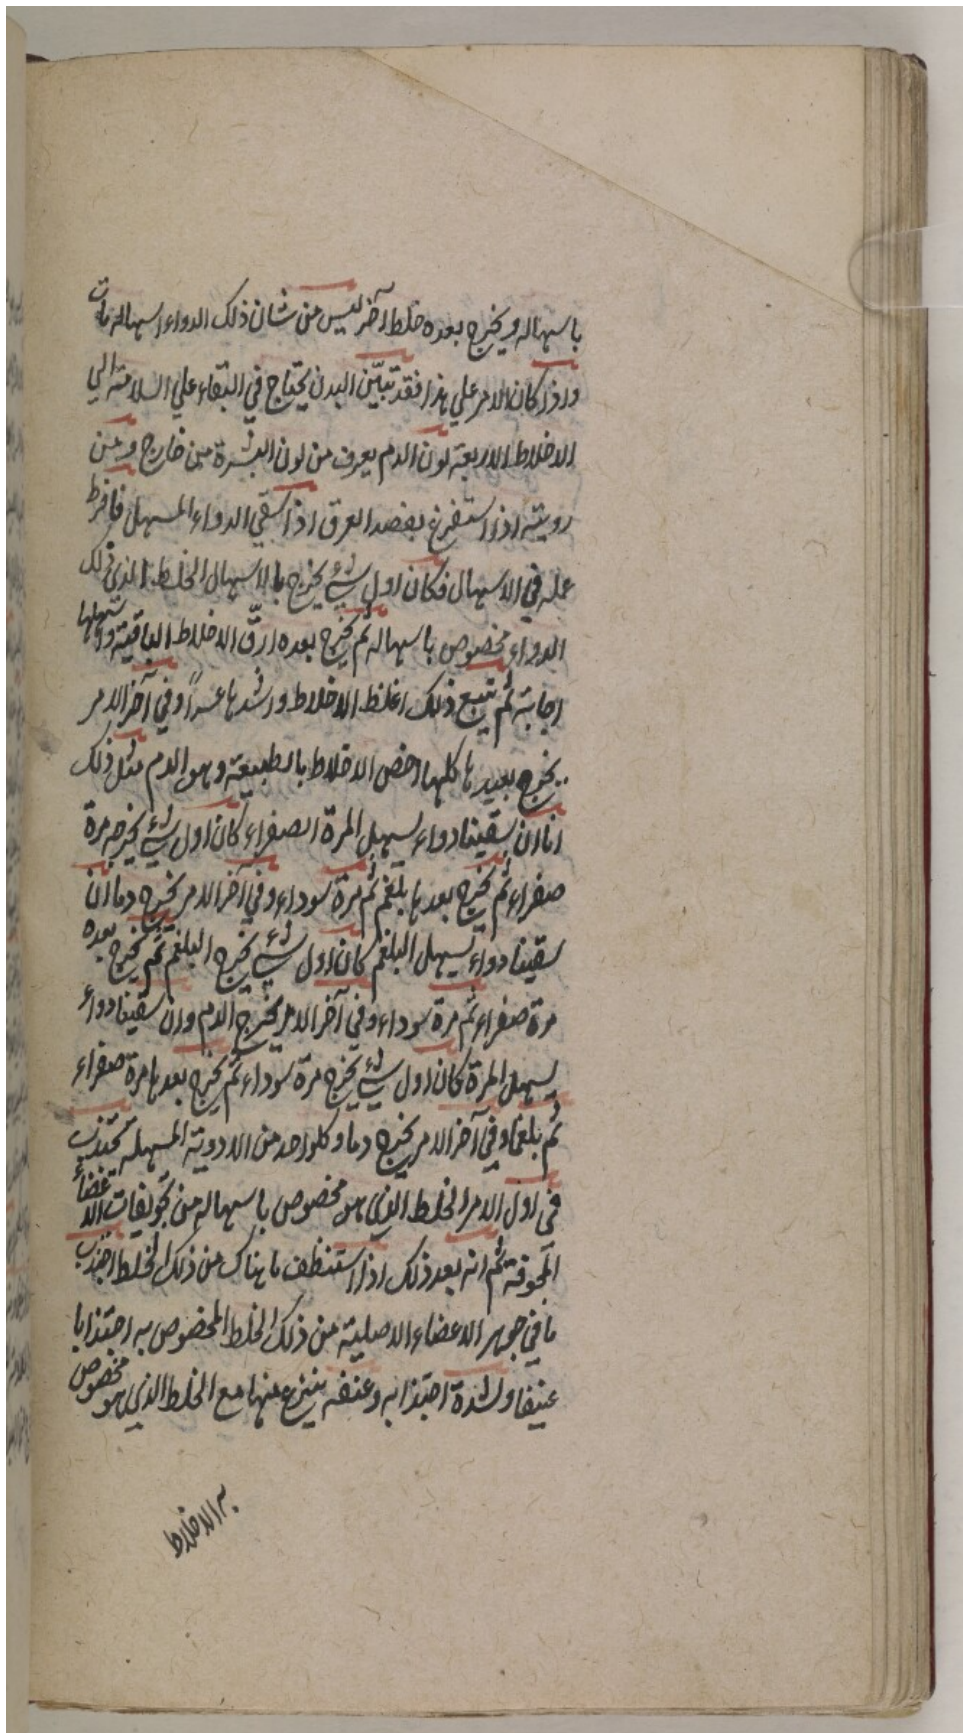 باسهاله ويخرج بعده خلط آخر ليس من شان ذلك الدواء اسهاله مات
واذا كان الامر علي هذا فقد تبيّن البدن يحتاج في البقاء علي السلامة الي
الاخلاط الاربعة لون الدم يعرف من لون البشرة من خارج ومن
رويته اذا استفرغ بفصد العرق اذا سقي الدواء المسهل فافرط
عمله في الاسهال فكان اول شيء يخرج بالاسهال الخلط الذي ذلك
الدواء مخصوص باسهاله ثم يخرج بعده ارقّ الاخلاط الباقية واسهلها
اجابة ثم يتبع ذلك اغلظ الاخلاط واشدها عسراً وفي آخر الامر
يخرج بعدها كلها اخص الاخلاط بالطبيعة وهو الدم مثل ذلك
انا ان سقينا دواء يسهل المرة الصفراء كان اول شيء يخرجه مرة
صفراء ثم يخرج بعدها بلغم ثم مرة سوداء وفي آخر الامر يخرج دما ان
سقينا دواء يسهل البلغم كان اول شيء يخرج البلغم ثم يخرج بعده
مرة صفراء ثم مرة سوداء وفي آخر الامر يخرج الدم وان سقينا دواء
يسهل المرة كان اول شيء يخرج مرة سوداء ثم يخرج بعدها مرة صفراء
ثم بلغما وفي آخر الامر يخرج دما وكلواحد من الادوية المسهلة يجتذب
في اول الامر الخلط الذي هو مخصوص باسهاله من تجويفات الاعضاء
المجوفة ثم انه بعد ذلك اذا استنظف ما هناك من ذلك الخلط اجتذب
ما في جوهر الاعضاء الاصلية من ذلك الخلط المخصوص به اجتذابا
عنيفا ولشدة اجتذابه وعنفه ينتزع عنها مع الخلط الذي هو مخصوص
به الاخلاط